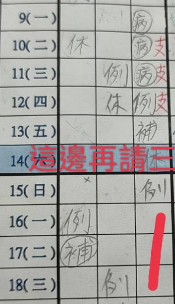 9(一) 病
10(二) 休 病 支
11(三) 例 病 支
12(四) 休 例 支
13(五) 補
14(六) 休
這邊再請三
15(日) 例
16(一) 例
17(二) 補
18(三) 例